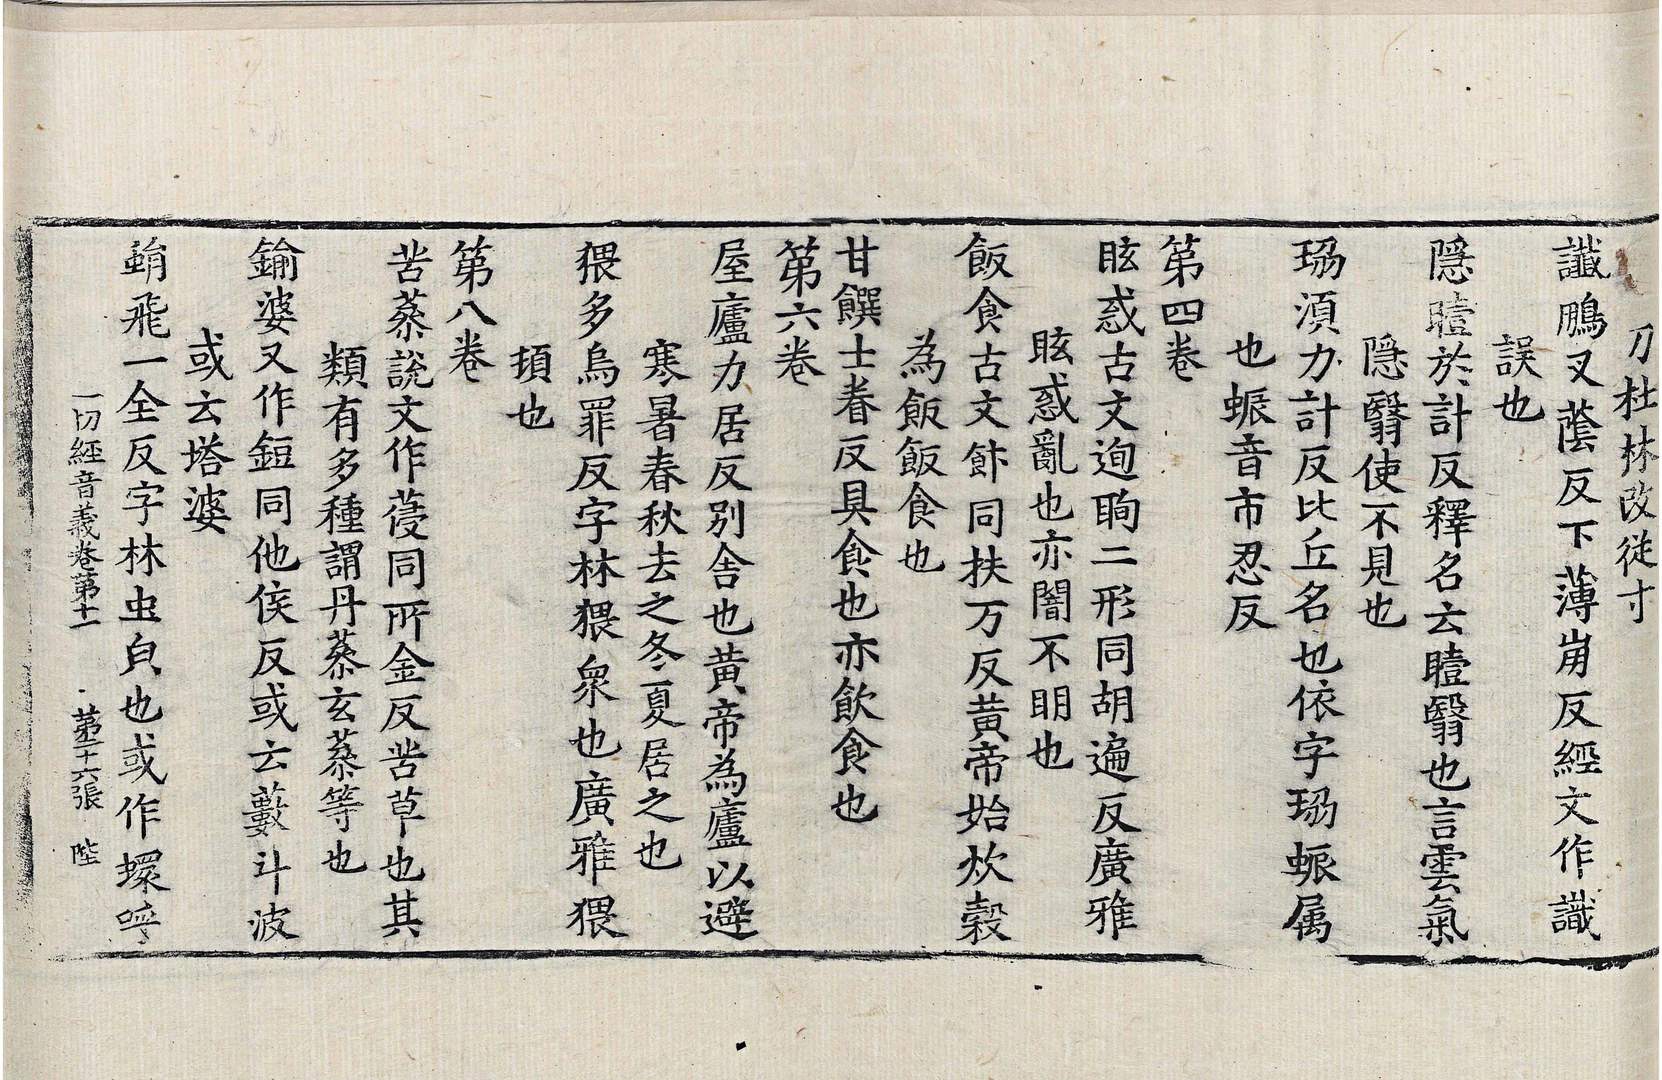 刀杜林改從寸
讖鵩叉蔭反下薄崩反經文作識
誤也
隱曀於計反釋名云曀翳也言雲氣
隱翳使不見也
珕湏力計反比丘名也依字珕蜄属
也蜄音市忍反
第四卷
眩惑古文迿眴二形同胡遍反廣雅
眩惑亂也亦闇不明也
飯食古文飰同扶万反黄帝始炊穀
為飯飯食也
甘饌士眷反具食也亦飲食也
第六卷
屋廬力居反別舍也黄帝為廬以避
寒暑春秋去之冬夏居之也
猥多烏罪反字林猥衆也廣雅猥
頓也
第八卷
苦蔘說文作葠同所金反苦草也其
類有多種謂丹蔘玄蔘等也
鍮婆又作鋀同他侯反或云藪斗波
或云塔婆
蜎飛一全反字林虫皃也或作蠉呼
一切經音義卷第十一 第二十六張 陛